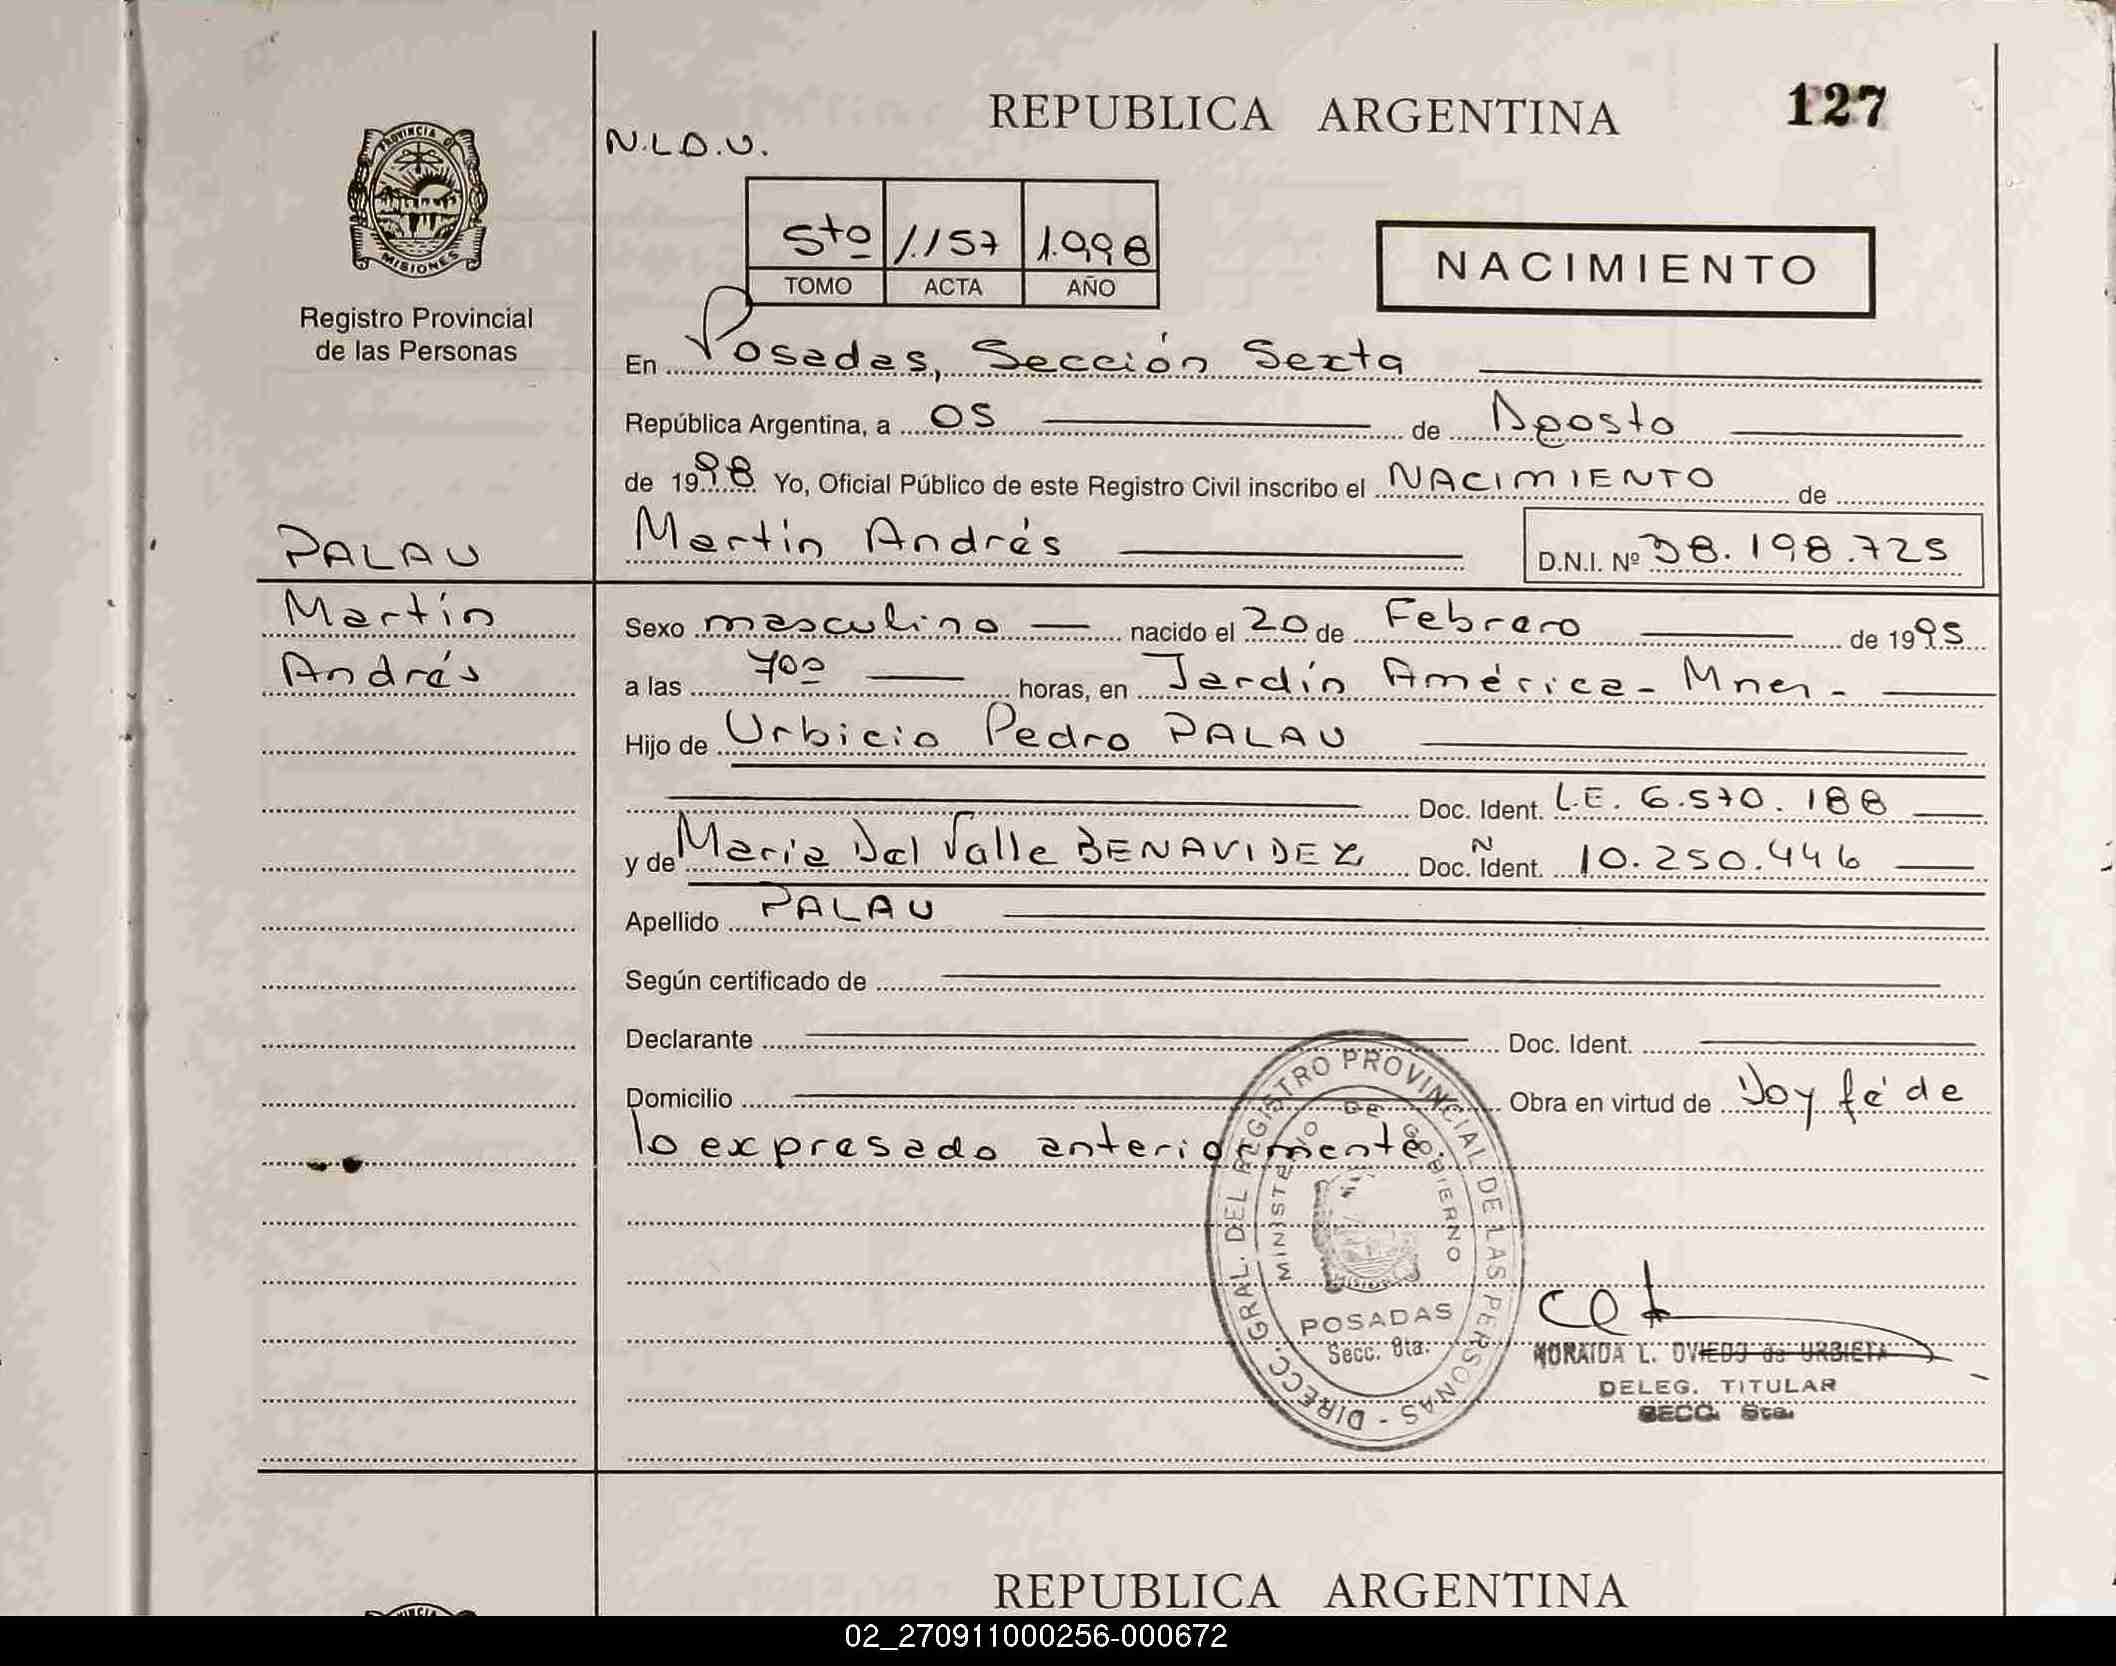 REPUBLICA ARGENTINA
127
PROVINCIA DE
MISIONES
Registro Provincial
de las Personas
N.L.D.U.
5to 1.157 1.998
TOMO ACTA AÑO
NACIMIENTO
En Posadas, Sección Sexta
República Argentina, a 05 de Agosto
de 1998 Yo, Oficial Público de este Registro Civil inscribo el NACIMIENTO de
PALAU
Martín Andrés D.N.I. Nº 38.198.725
Martín
Andrés
Sexo masculino nacido el 20 de Febrero de 1995
a las 7oo horas, en Jardín América - Mnes -
Hijo de Urbicio Pedro PALAU
Doc. Ident. L.E. 6.570.188
y de Maria Del Valle BENAVIDEZ Doc. Ident. N 10.250.446
Apellido PALAU
Según certificado de
Declarante Doc. Ident.
Domicilio Obra en virtud de Doy fé de
lo expresado anteriormente.
DIRECC. GRAL. DEL REGISTRO PROVINCIAL DE LAS PERSONAS -
MINISTERIO DE GOBIERNO
MISIONES
POSADAS
Secc. 6ta.
L. OVIEDO de URBIETA
DELEG. TITULAR
SECC. 6ta.
REPUBLICA ARGENTINA
02_270911000256-000672